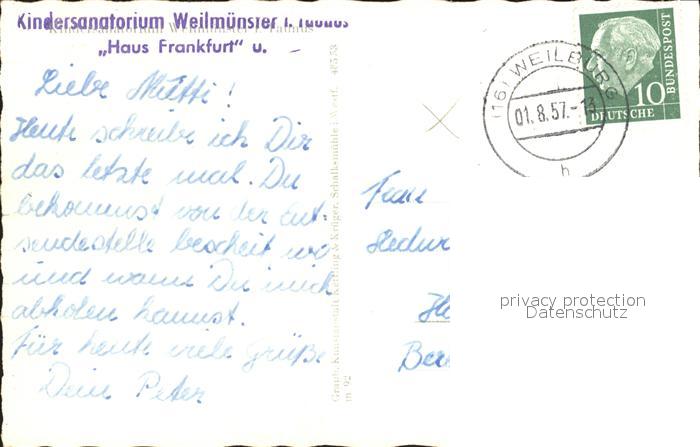 Kindersanatorium Weilmünster i. Taunus
„Haus Frankfurt" u.
Kindersanatorium Weilmünster i. Taunus
Liebe Mutti!
Heute schreibe ich Dir
das letzte mal. Du
bekommst von der Ent-
sendestelle bescheit wo
und wann Du mich
abholen kannst.
Für heute viele Grüße
Dein Peter
Graph. Kunstanstalt Kettling & Krüger, Schalksmühle i. Westf. 46553
m 92
(16) WEILBURG
01.8.57.-13
h
10
DEUTSCHE
BUNDESPOST
Frau
Hedw
Ber
privacy protection
Datenschutz